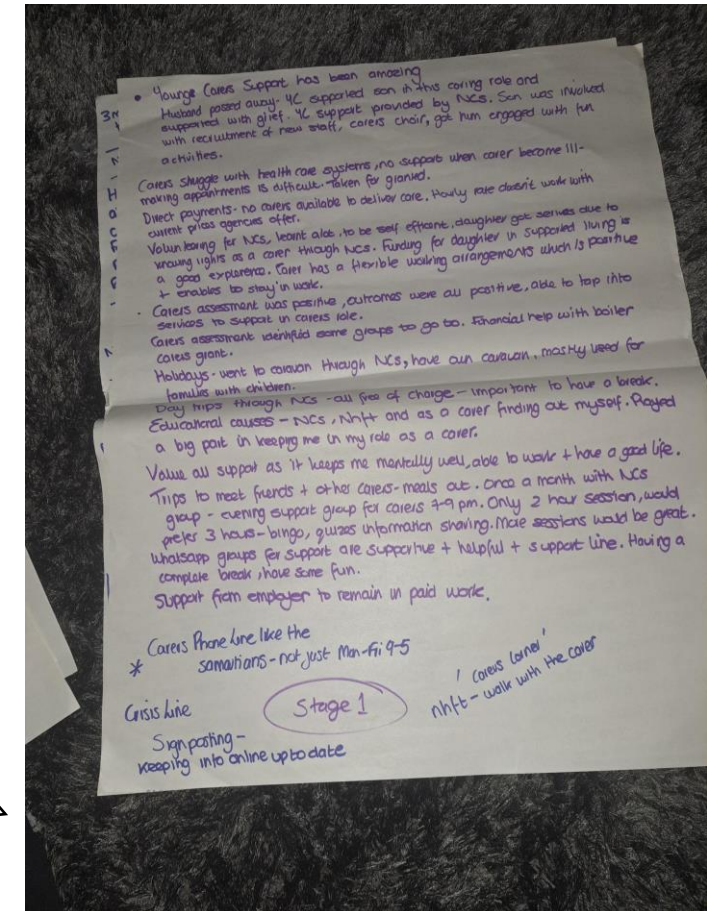 • Younge Carers Support has been amazing
Husband passed away. YC supported son in this caring role and
supported with grief. YC support provided by NCS. Son was involved
with recruitment of new staff, carers choir, got him engaged with fun
activities.
Carers struggle with health care systems, no support when carer become ill-
making appointments is difficult. Taken for granted.
Direct payments - no carers available to deliver care. Hourly rate doesn't work with
current prices agencies offer.
Volunteering for NCS, learnt alot, to be self efficent, daughter got serives due to
knowing rights as a carer through NCS. Funding for daughter in supported living is
a good experence. Carer has a flexible working arrangements which is positive
+ enables to stay in work.
. Carers assessment was positive, outcomes were all positive, able to tap into
services to support in carers role.
Carers assessment identifid some groups to go to. Financial help with boiler
carers grant.
Holidays - went to caravan through NCS, have own caravan, mostly used for
families with children.
Day trips through NCS - all free of charge - important to have a break.
Educational causes - NCS, Nhft and as a carer finding out myself. Played
a big part in keeping me in my role as a carer.
Value all support as it keeps me mentally well, able to work + have a good life.
Trips to meet friends + other carers - meals out. once a month with NCS
group - evening support group for carers 7-9 pm. Only 2 hour session, would
prefer 3 hours - bingo, quizes information sharing. More sessions would be great.
Whatsapp groups for support are supportive + helpful + support line. Having a
complete break, have some fun.
Support from employer to remain in paid work.
* Carers Phone line like the
samaritans - not just Mon-Fri 9-5
'carers corner'
nhft - walk with the carer
Crisis Line
Stage 1
Signposting -
keeping info online up to date